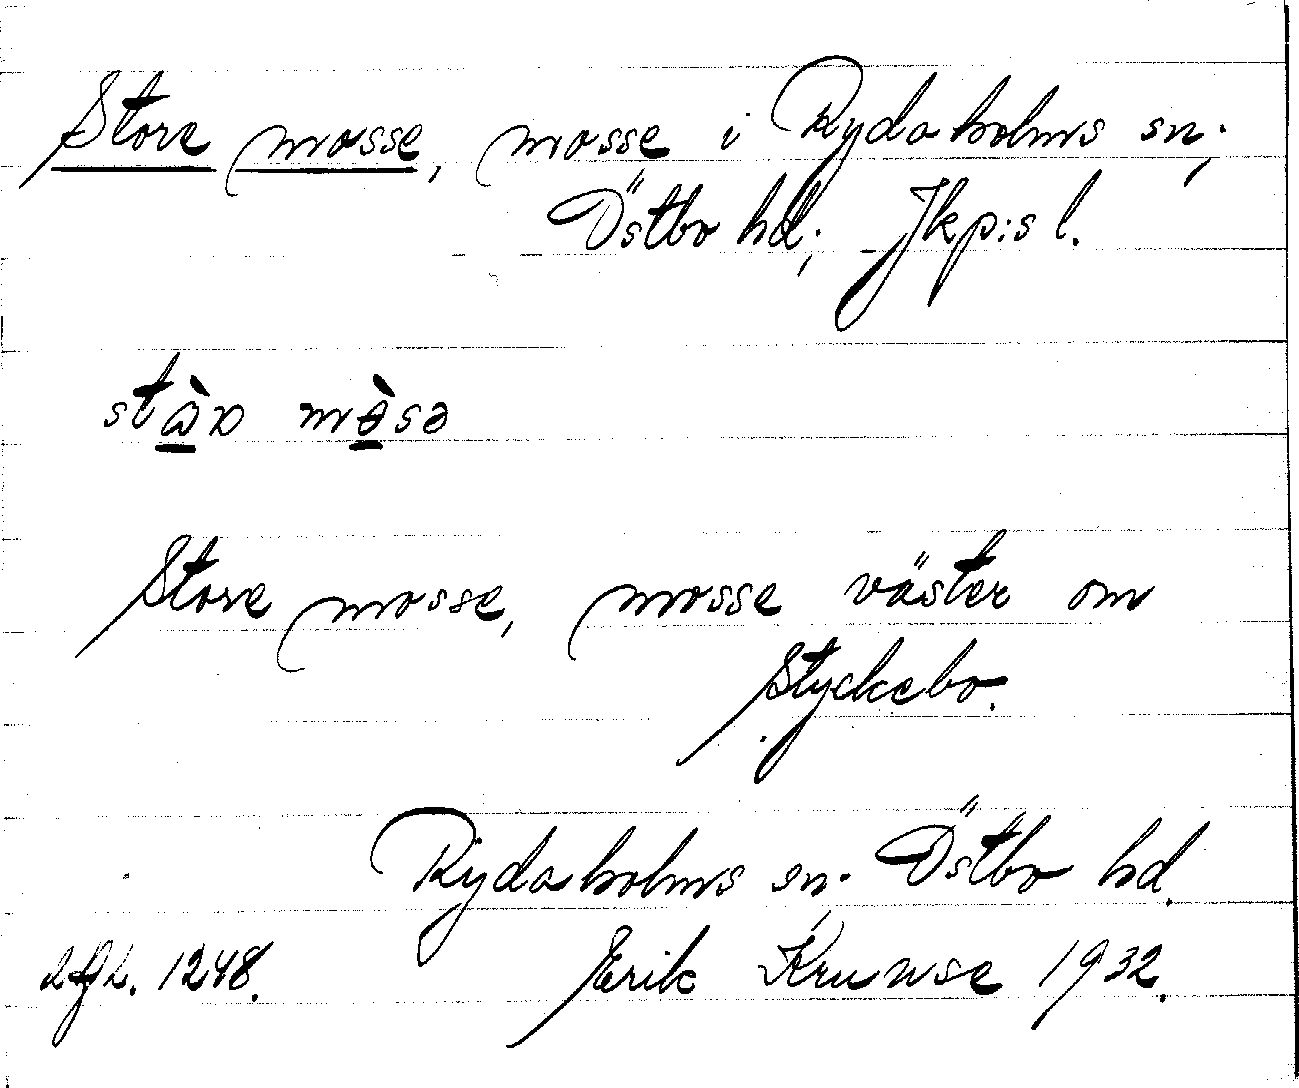 Store mosse, mosse i Rydaholms sn,
Östbo hd, Jkp:s l.
Store mosse, mosse väster om
Styckebo.
Rydaholms sn. Östbo hd.
1248. Erik Kruuse 1932.